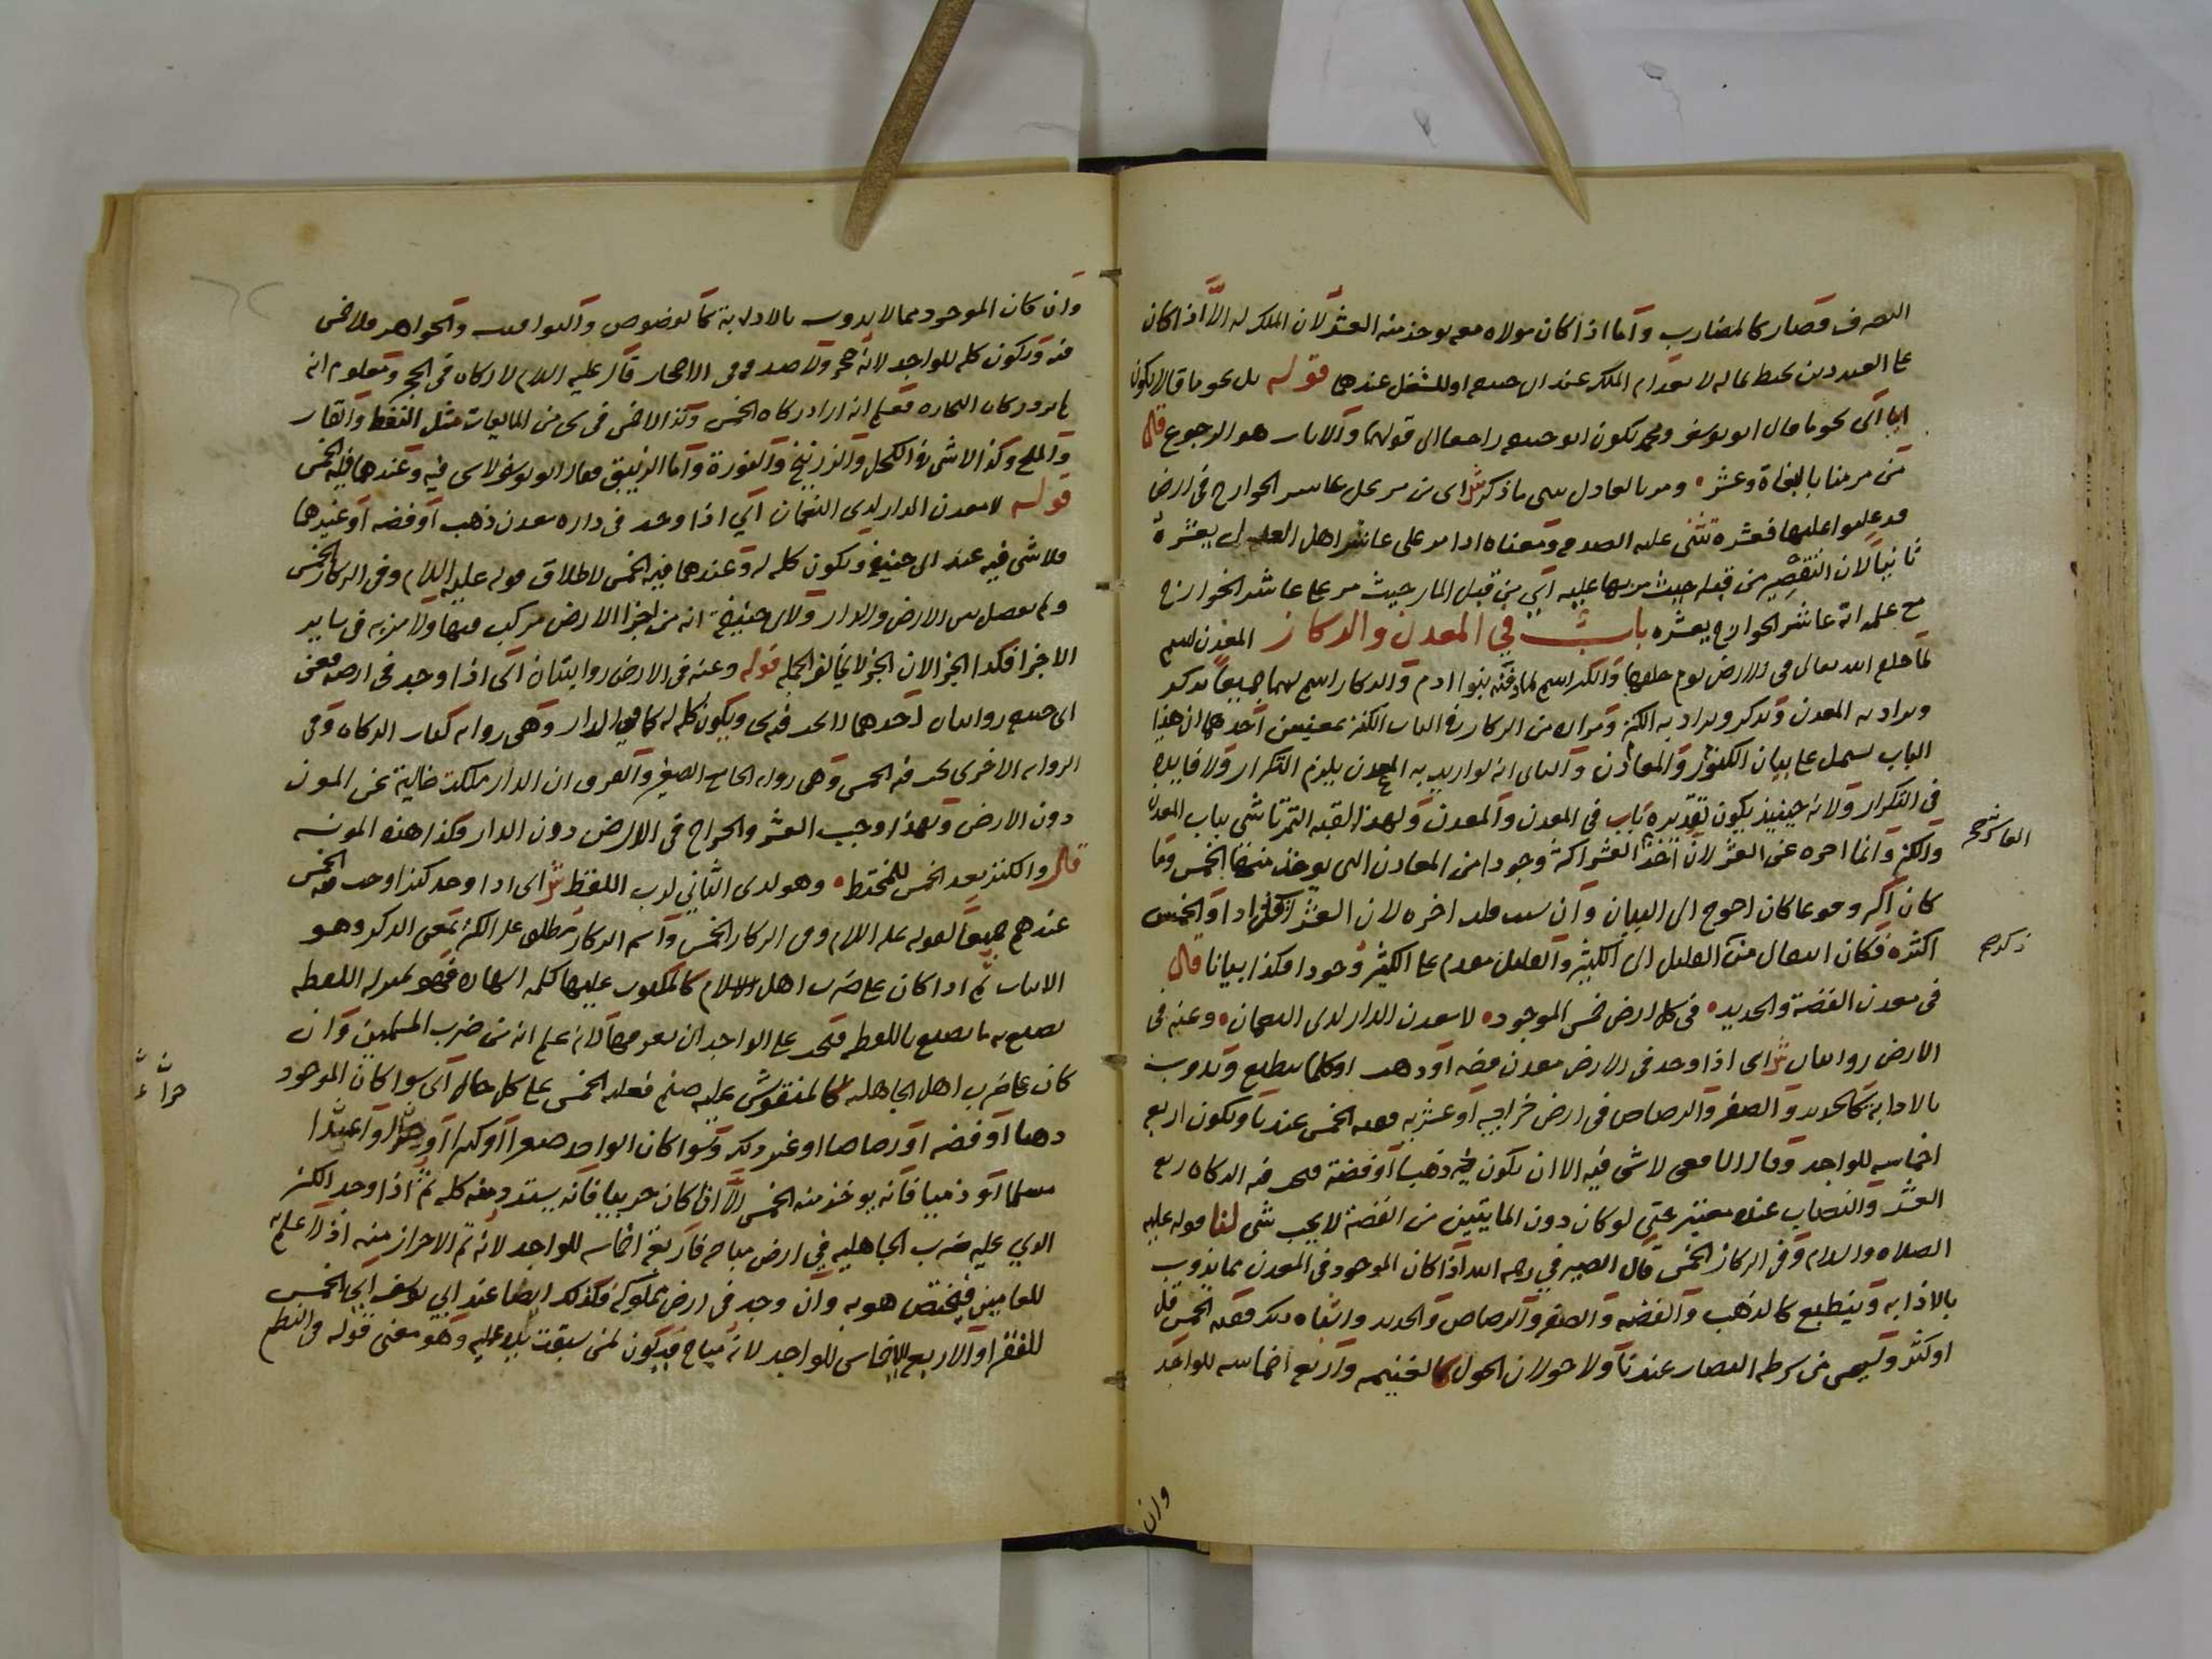 التصرف فصار كالمضارب واما اذا كان مولاه معه يوخذ منه العشر لان الملك له الا اذا كان
على العبد دين يحيط بماله لانعدام الملك عند ابى حنيفه او للشغل عندهما قوله بل نحو ما قالا يكون
اى نحو ما قال ابو يوسف ومحمد يكون ابو حنيفه راجعا الى قولهما والاياب هو الرجوع قال
من مر منا بالبغاة وعشر ومر بالعادل ثنى ما ذكر ش اى من مر على عاشر الخوارج فى ارض
قد غلبوا عليها فعشره تثنى عليه الصدقه ومعناه اذا مر على عاشر اهل العدل يعشره
ثانيا لان التقصير من قبله حيث مر بها عليه اي من قبل المار حيث مر على عاشر الخوارج
مع علمه انه عاشر الخوارج يعشره باب في المعدن والركاز المعدن اسم
لما خلقه الله تعالى فى الارض يوم خلقها والكنز اسم لما دفنه بنوا ادم والركاز اسم لهما جميعا يذكر
ويراد به المعدن ويذكر ويراد به الكنز ومراده من الركاز فى الباب الكنز بمعنيين احدهما ان هذا
الباب يشمل على بيان الكنوز والمعادن والثانى انه لو اريد به المعدن يلزم التكرار ولا فايده
فى التكرار ولانه حينيذ يكون تقديره باب فى المعدن والمعدن ولهذا لقبه التمرتاشى بباب المعدن
والكنز وانما اخره عن العشر لان اخذ العشر اكثر وجودا من المعادن التى يوخذ منها الخمس وما
كان اكثر وقوعا كان احوج الى البيان وان سيت قلت اخره لان العشر اقل اداء والخمس
اكثره فكان انتقال من القليل الى الكثير والقليل مقدم على الكثير وجودا فكذا بيانا قال
فى معدن الفضة والحديد فى كل ارض خمس الموجود لا معدن الدار لدى النعمان وعنه فى
الارض روايتان ش اى اذا وجد فى الارض معدن فضه او ذهب او كلما ينطبع ويذوب
بالاذابة كالحديد والصفر والرصاص فى ارض خراجيه او عشريه ففيه الخمس عندنا ويكون اربع
اخماسه للواجد وقال الشافعى لاشى فيه الا ان يكون فيه ذهبا او فضة فتجب فيه الزكاه ربع
العشر والنصاب عنده معتبر حتى لو كان دون المايتين من الفضة لا يجب شى لنا قوله عليه
الصلاه والسلام وفى الركاز الخمس قال الصيرفي رحمه الله اذا كان الموجود فى المعدن مما يذوب
بالاذابه وينطبع كالذهب والفضه والصفر والرصاص والحديد واشباه ذلك ففيه الخمس قل
او كثر وليس من شرطه النصاب عندنا ولا حولان الحول كالغنيمه واربع اخماسه للواجد
وان
وان كان الموجود مما لا يذوب بالاذابة كالفصوص واليواقيت والجواهر فلا خمس
فيه ويكون كله للواجد لانه حجر ولا صدقه فى الاحجار قال عليه السلام لا زكاه فى الحجر ومعلوم انه
لم يرد زكاه التجاره فعلم انه اراد زكاه الخمس وكذا لا خمس فى شى من المايعات مثل النفط والقار
والملح وكذا لا شى فى الكحل والزرنيخ والنورة واما الزيبق فقال ابو يوسف لاشى فيه وعندهما فيه الخمس
قوله لا معدن الدار لدى النعمان اي اذا وجد فى داره معدن ذهب او فضه او غيرهما
فلا شى فيه عند ابى حنيفه ويكون كله له وعندهما فيه الخمس لاطلاق قوله عليه السلام وفى الركاز الخمس
ولم يفصل بين الارض والدار ولابى حنيفة انه من اجزا الارض مركب فيها ولا مونه فى ساير
الاجزا فكذا الجز لان الجز لا يخالف الجمله قوله وعنه فى الارض روايتان اى اذا وجد فى ارضه فعن
ابى حنيفه روايتان احدهما لا يجب فيه شى ويكون كله له كما في الدار وهى روايه كتاب الزكاه وفى
الروايه الاخرى يجب فيه الخمس وهى روايه الجامع الصغير والفرق ان الدار ملكت خالية عن المون
دون الارض ولهذا وجب العشر والخراج فى الارض دون الدار فكذا هذه المونه
قال والكنز بعد الخمس للمختط وهو لدى الثاني لرب اللقط ش اى اذا وجد كنزا وجب فيه الخمس
عندهم جميعا لقوله عليه السلام وفى الركاز الخمس واسم الركاز يطلق على الكنز بمعنى الركز وهو
الاثبات ثم اذا كان على ضرب اهل الاسلام كالمكتوب عليها كلمه الشهاده فهو بمنزله اللقطه
يصنع به ما يصنع باللقطه فيجب على الواجد ان يعرفها لانه علم انه من ضرب المسلمين وان
كان على ضرب اهل الجاهليه كالمنقوش عليه صنم ففيه الخمس على كل حال اى سوا كان الموجود
ذهبا او فضه او رصاصا او غير ذلك وسوا كان الواجد صغيرا او كبيرا او حرا او عبدا
مسلما او ذميا فانه يوخذ منه الخمس الا اذا كان حربيا فانه يسترد منه كله ثم اذا وجد الكنز
الذي عليه ضرب الجاهليه في ارض مباحه فاربعة اخماسه للواجد لانه تم الاحراز منه اذ لا علم به
للغانمين فيختص هو به وان وجد فى ارض مملوكة فكذلك ايضا عند ابي يوسف اي الخمس
للفقرا والاربع الاخماس للواجد لانه مباح فيكون لمن سبقت يده عليه وهو معنى قوله فى النظم